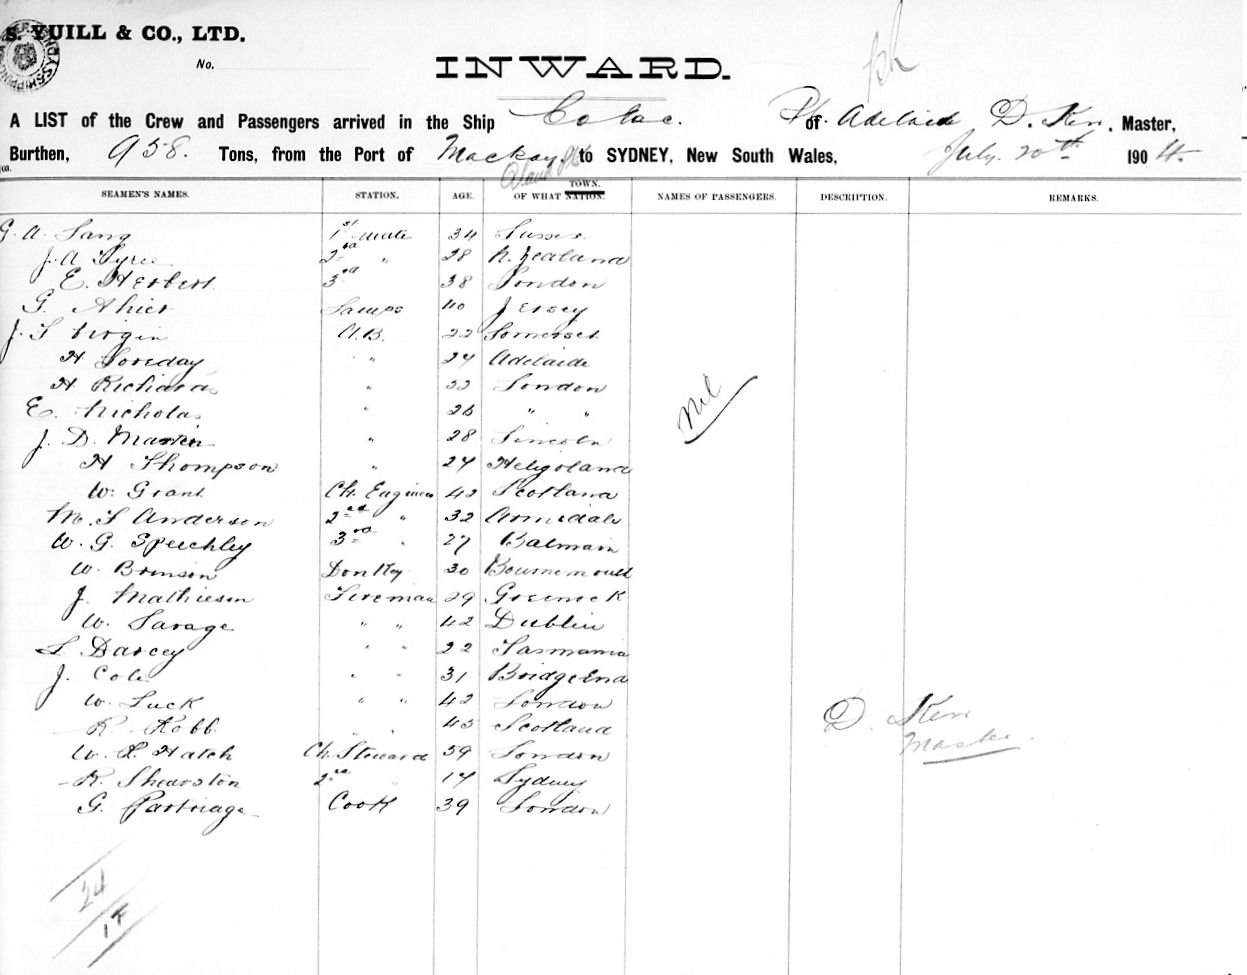 S. YUILL & CO., LTD.
No.
INWARD.
A LIST of the Crew and Passengers arrived in the Ship Colac. of Adelaide D. Kerr, Master,
Burthen, 958. Tons, from the Port of Mackay to SYDNEY, New South Wales, July. 20th 1904.
SEAMEN'S NAMES. STATION. AGE. OF WHAT NATION. TOWN. NAMES OF PASSENGERS. DESCRIPTION. REMARKS.
G. A. Lang 1st Mate 34 Sussex
J. A. Tyree 2nd " 28 N. Zealand
E. Herbert 3rd 38 London
G. Ahier Lamps 40 Jersey
J. S. Virgin A.B. 22 Somerset
H Loveday " 24 Adelaide
H. Richards " 22 London
E. Nicholas " 26 " "
J. D. Martin " 28 Lincoln
H Thompson " 24 Heligoland
W. Grant Ch. Engineer 42 Scotland
M. S Anderson 2nd " 32 Armidale
W. G. Speechley 3rd " 27 Balmain
W. Brinson Donkey 30 Bournemouth
J. Mathieson Fireman 29 Greenock
W. Savage " " 42 Dublin
L Darcey " " 22 Tasmania
J. Cole " " 31 BridgeEnd
W. Luck " " 42 London
R. Robb " " 45 Scotland
W. L. Hatch Ch. Steward 59 London
R. Shearston 2nd " 17 Sydney
G. Partridge Cook 39 London
Nil
D. Kerr
Master
24